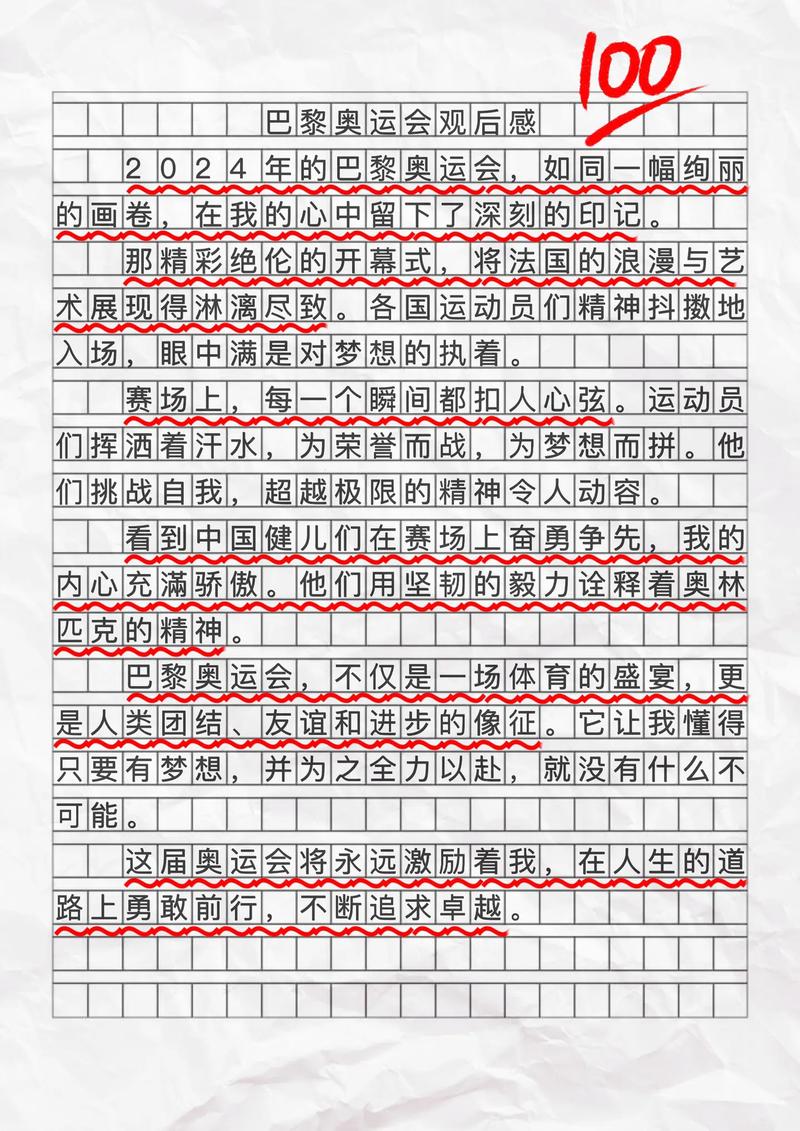 100
巴黎奥运会观后感
2024年的巴黎奥运会，如同一幅绚丽
的画卷，在我的心中留下了深刻的印记。
那精彩绝伦的开幕式，将法国的浪漫与艺
术展现得淋漓尽致。各国运动员们精神抖擞地
入场，眼中满是对梦想的执着。
赛场上，每一个瞬间都扣人心弦。运动员
们挥洒着汗水，为荣誉而战，为梦想而拼。他
们挑战自我，超越极限的精神令人动容。
看到中国健儿们在赛场上奋勇争先，我的
内心充满骄傲。他们用坚韧的毅力诠释着奥林
匹克的精神。
巴黎奥运会，不仅是一场体育的盛宴，更
是人类团结、友谊和进步的像征。它让我懂得
只要有梦想，并为之全力以赴，就没有什么不
可能。
这届奥运会将永远激励着我，在人生的道
路上勇敢前行，不断追求卓越。